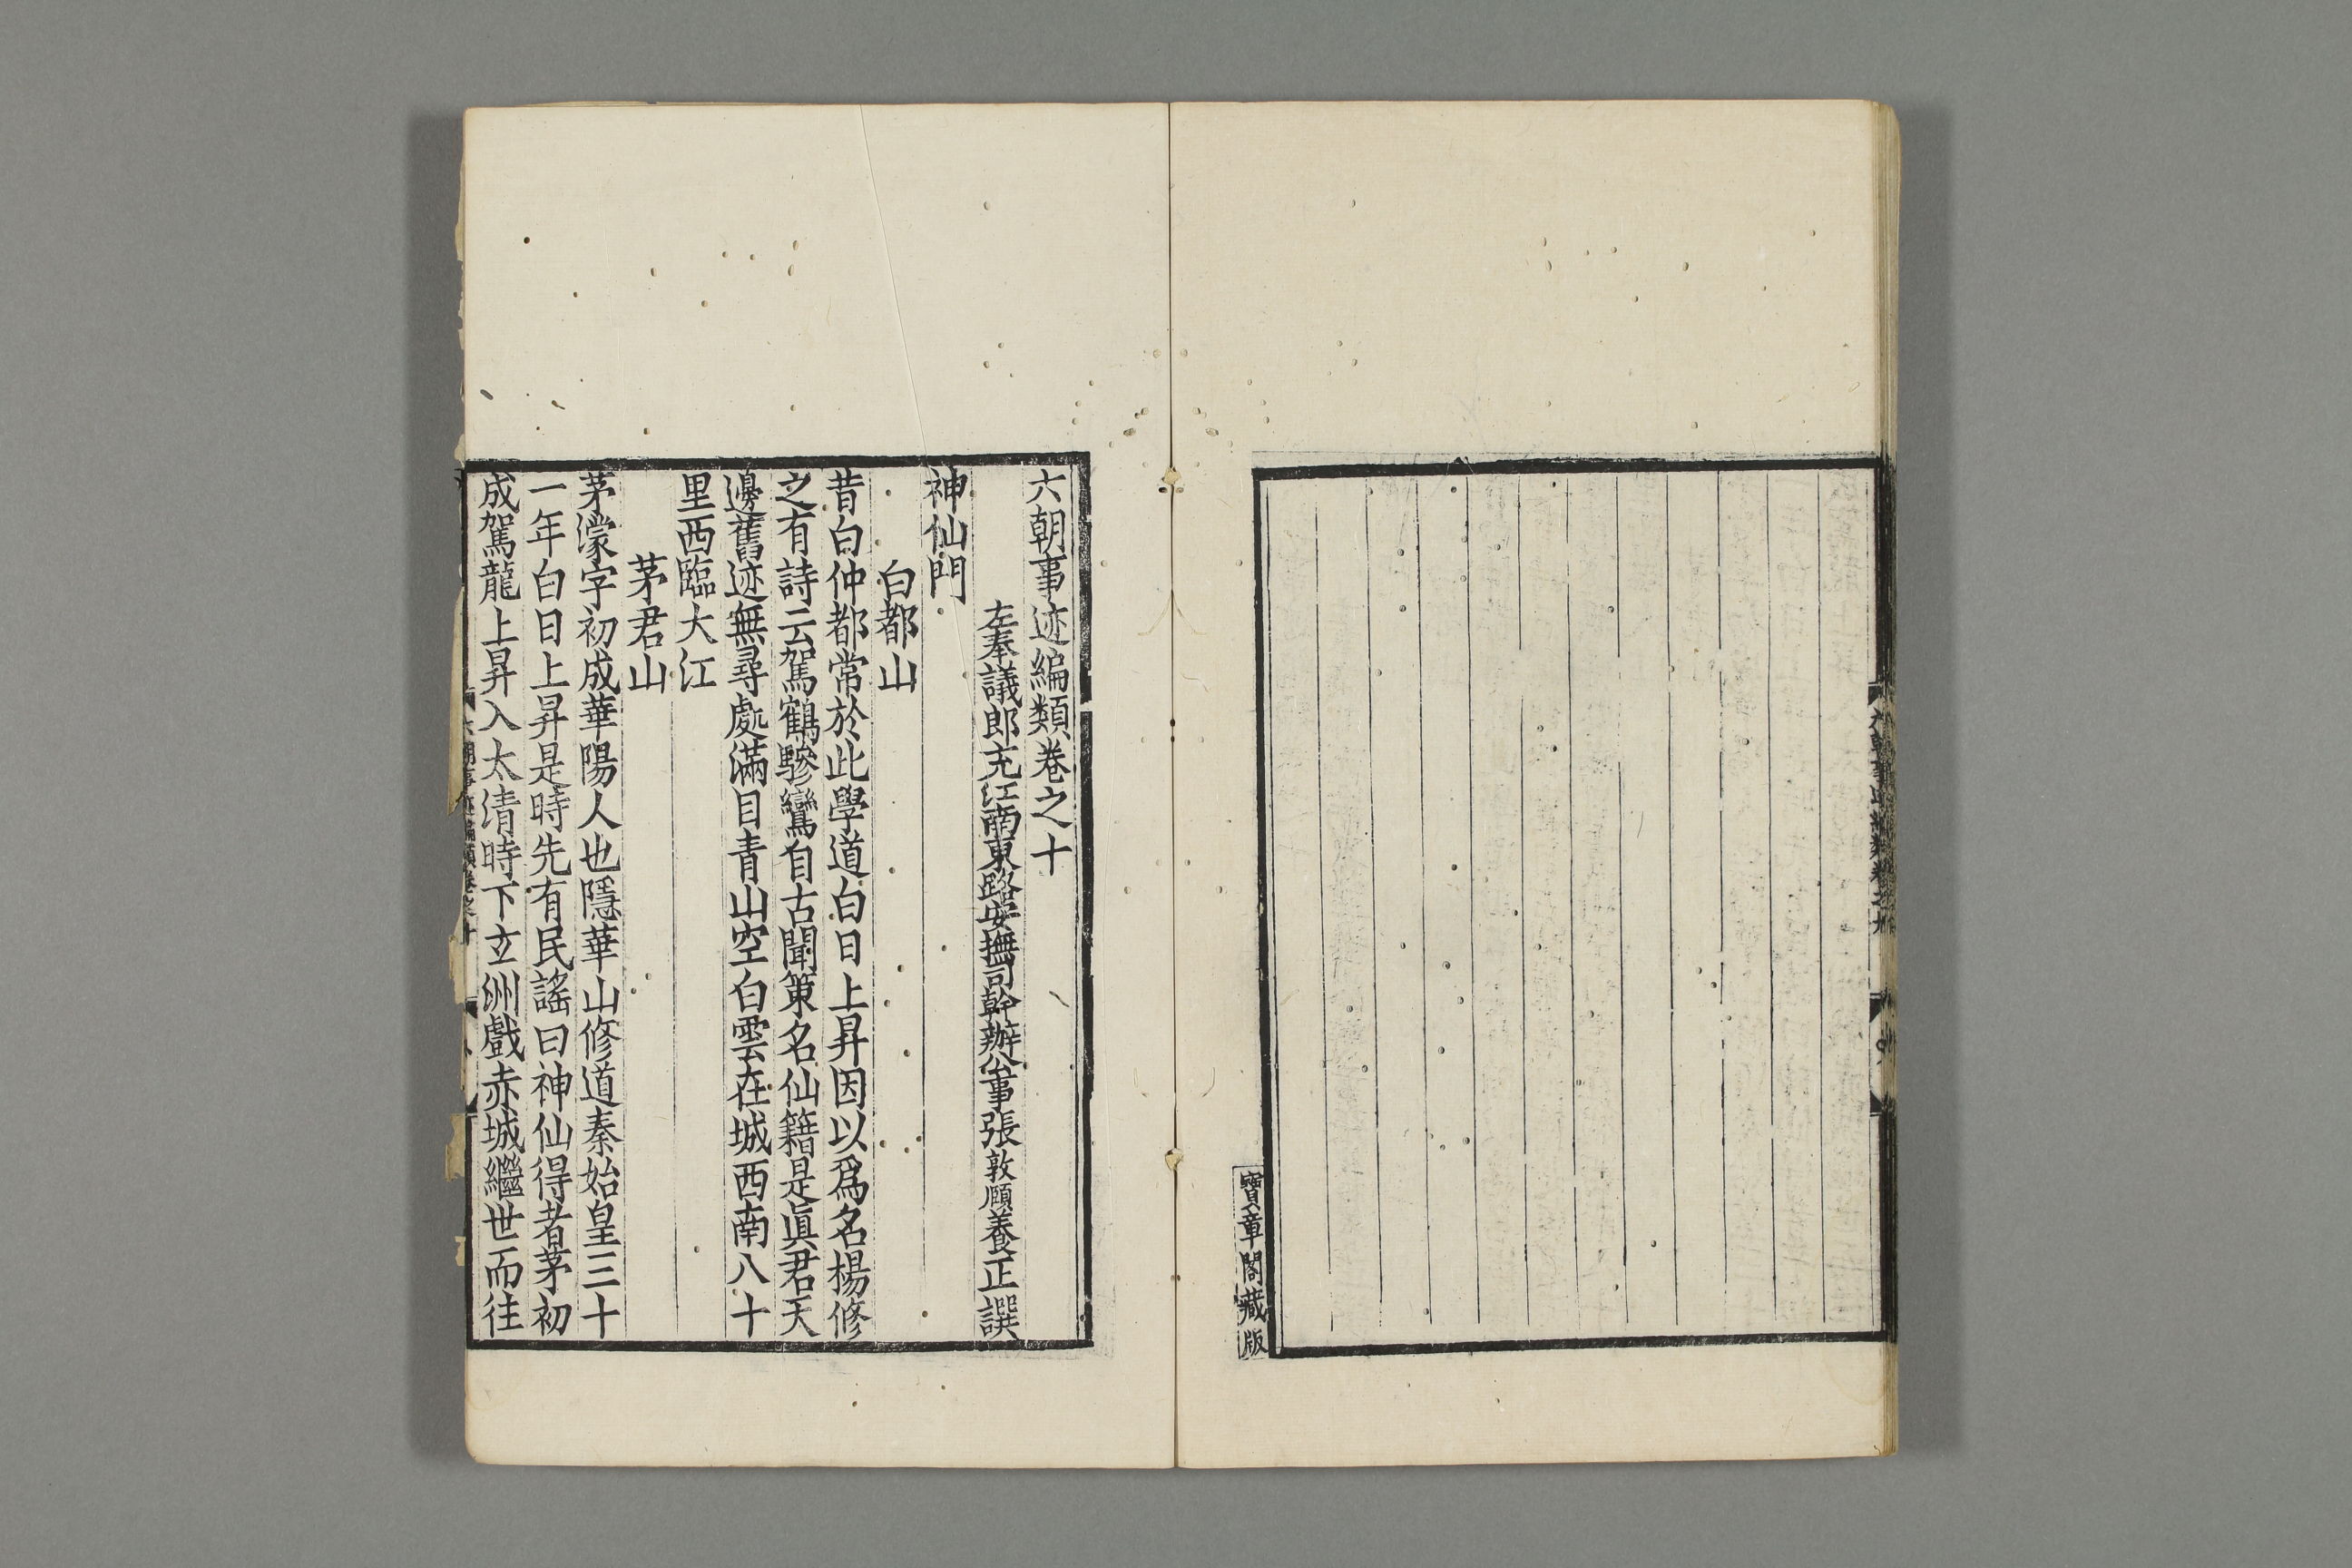 寶章閣藏版
六朝事迹編類卷之十
左奉議郎充江南東路安撫司幹辦公事張敦頤養正譔
神仙門
白都山
昔白仲都常於此學道白日上昇因以爲名楊修
之有詩云駕鶴驂鸞自古聞策名仙籍是眞君天
邊舊迹無尋處滿目青山空白雲在城西南八十
里西臨大江
茅君山
茅濛字初成華陽人也隱華山修道秦始皇三十
一年白日上昇是時先有民謠曰神仙得者茅初
成駕龍上昇入太清時下玄洲戲赤城繼世而往
六朝事迹編類卷之十